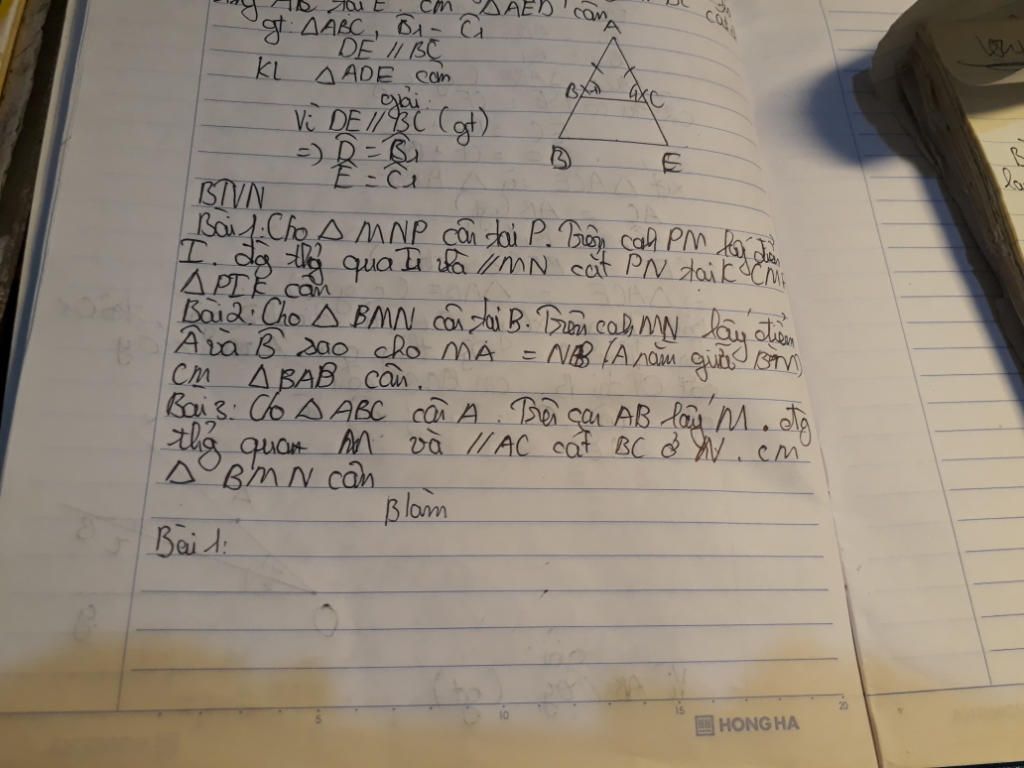 AB tại E. cm △AED cân
gt: △ABC, B̂1 = Ĉ1
DE // BC
KL △ADE cân
giải:
Vì DE // BC (gt)
=) D̂ = B̂1
Ê = Ĉ1
A
B
C
B
E
BTVN
Bài 1: Cho △ MNP cân tại P. Trên cạh PM lấy điểm
I. đg thg qua I và // MN cắt PN tại K CM
△PIK cân
Bài 2: Cho △ BMN cân tại B. Trên cạh MN lấy điểm
A và B sao cho MA = NB (A nằm giữa B và M)
CM △BAB cân.
Bài 3: Co △ ABC cân A. Trên cạn AB lấy M. đg
thg qua M và // AC cắt BC ở N. CM
△ BMN cân
Blàm
Bài 1:
5 10 15 20
HONG HA